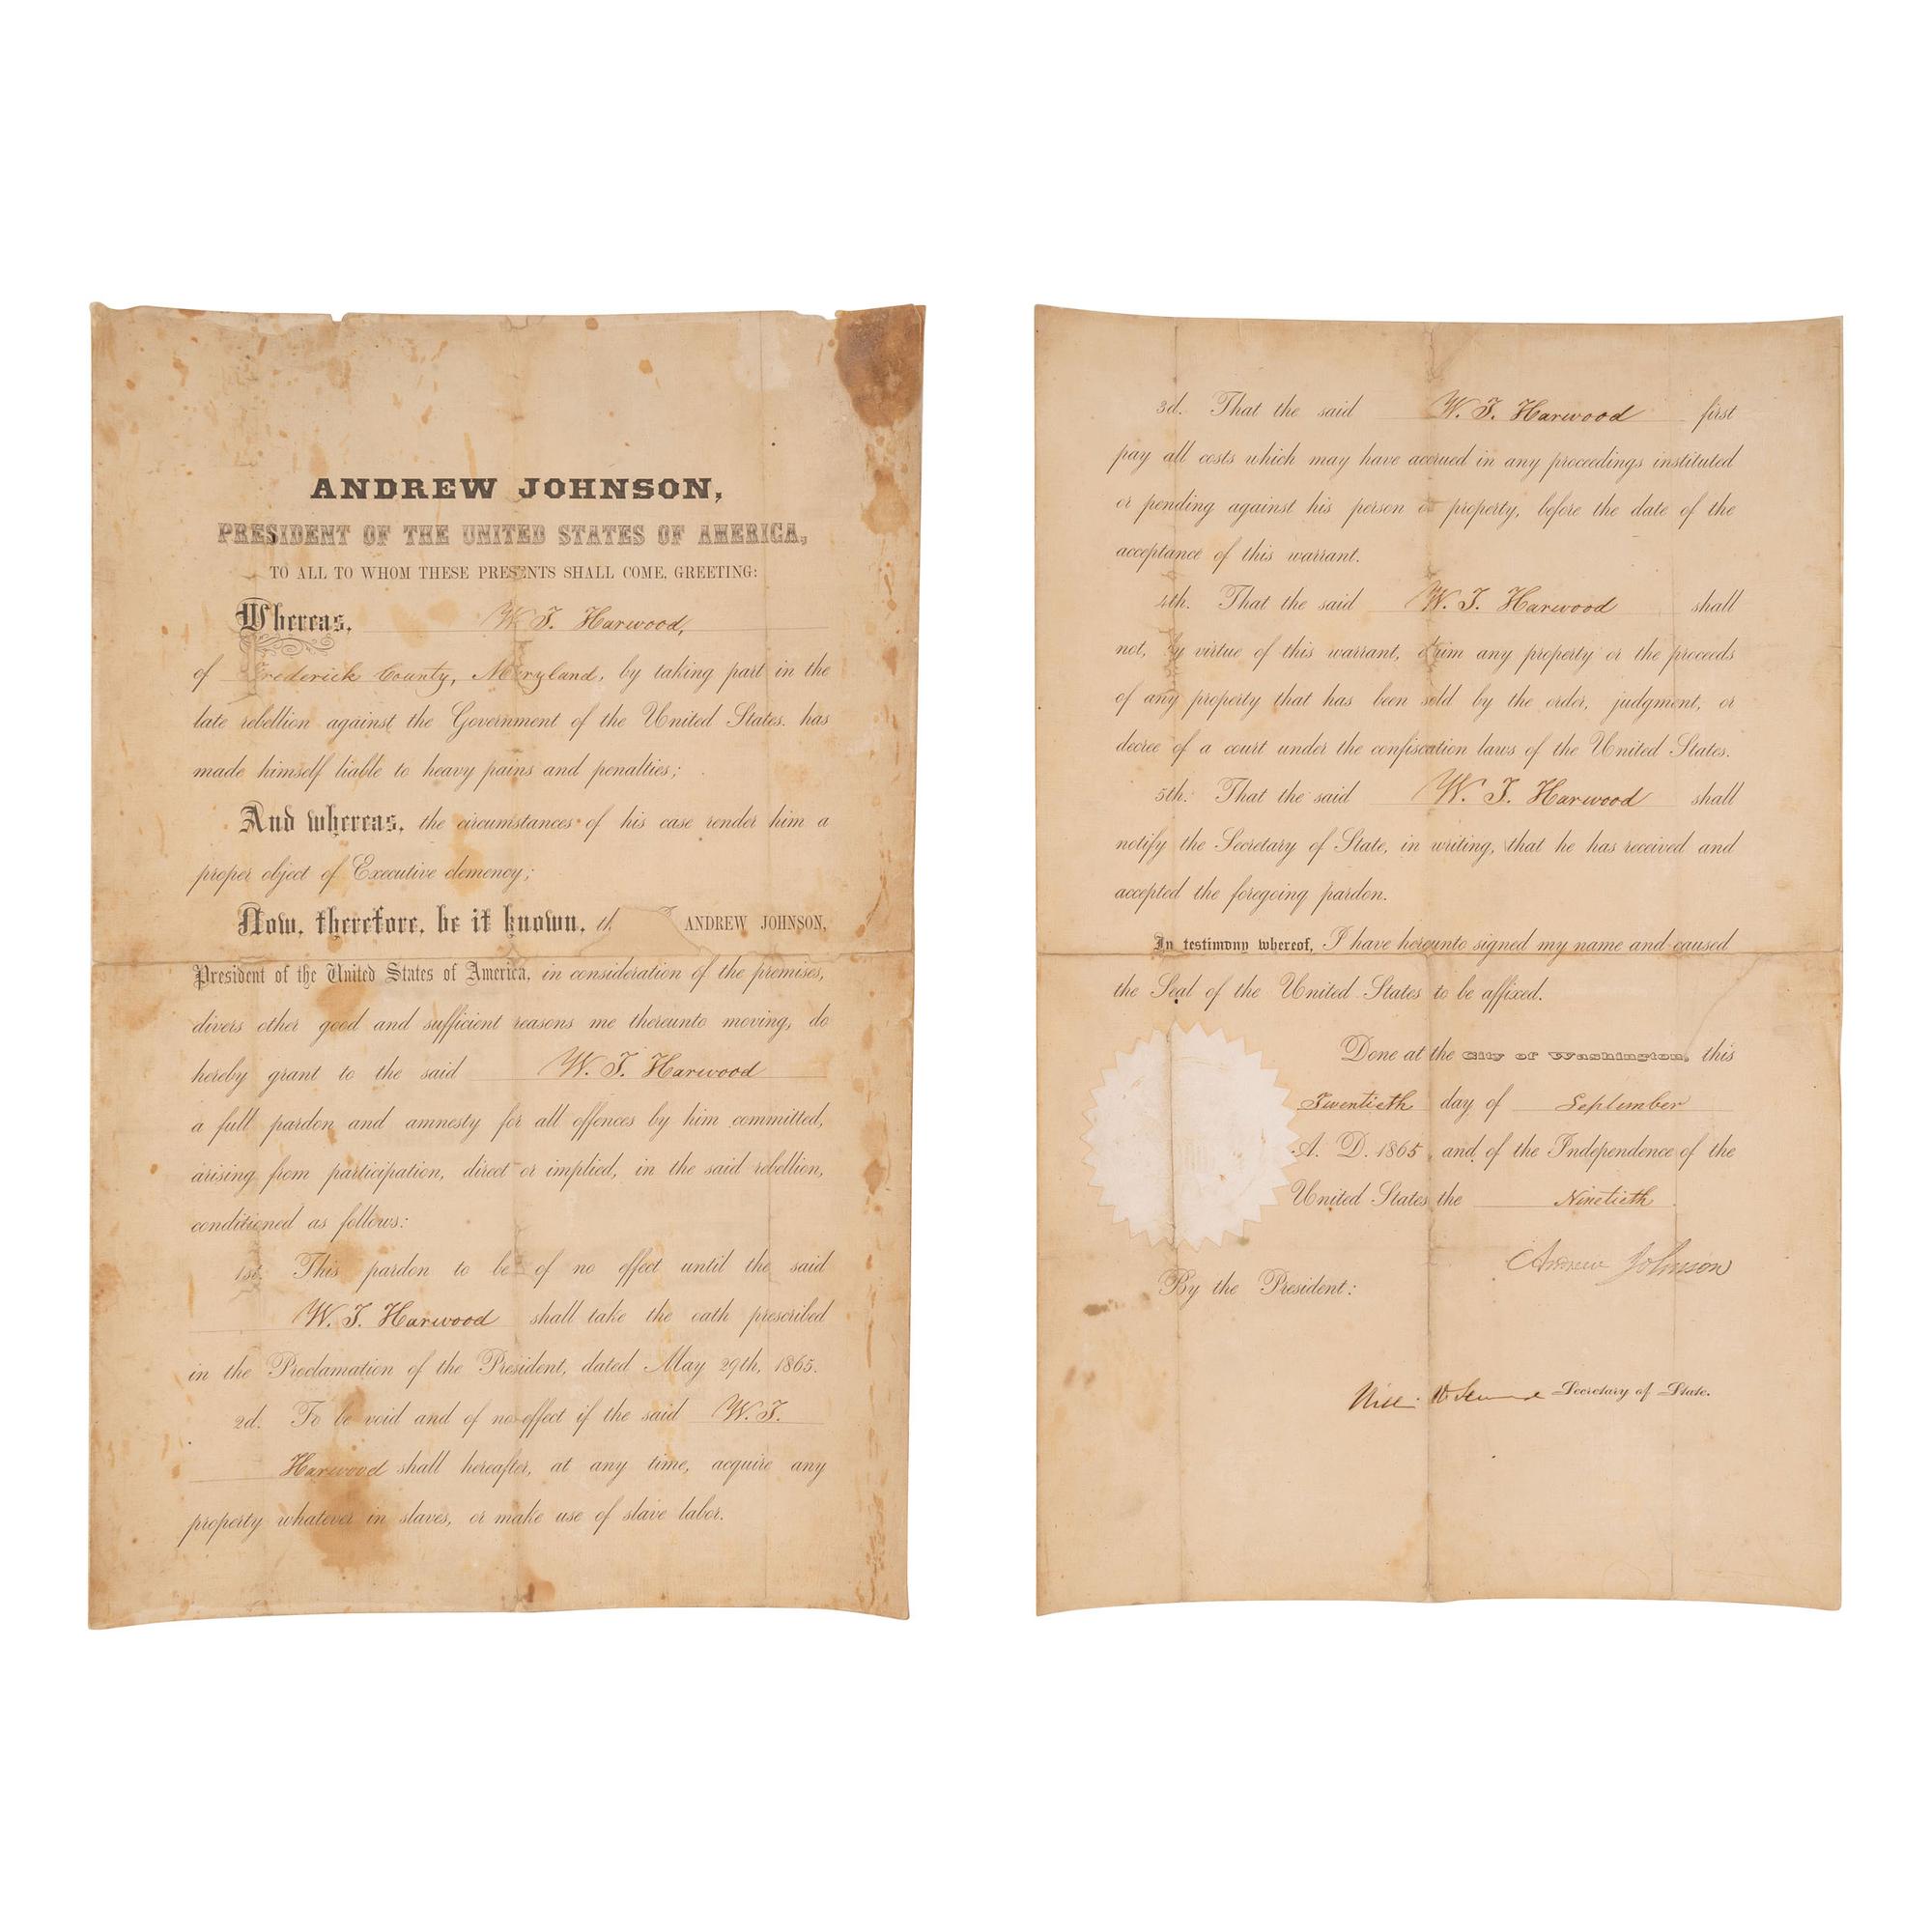 ANDREW JOHNSON,
PRESIDENT OF THE UNITED STATES OF AMERICA,
TO ALL TO WHOM THESE PRESENTS SHALL COME, GREETING:
Whereas, W. T. Harwood,
of Frederick County, Maryland, by taking part in the
late rebellion against the Government of the United States, has
made himself liable to heavy pains and penalties;
And whereas, the circumstances of his case render him a
proper object of Executive clemency;
Now, therefore, be it known, th ANDREW JOHNSON,
President of the United States of America, in consideration of the premises,
divers other good and sufficient reasons me thereunto moving, do
hereby grant to the said W. T. Harwood
a full pardon and amnesty for all offences by him committed,
arising from participation, direct or implied, in the said rebellion,
conditioned as follows:
1st. This pardon to be of no effect until the said
W. T. Harwood shall take the oath prescribed
in the Proclamation of the President, dated May 29th, 1865.
2d. To be void and of no effect if the said W. T.
Harwood shall hereafter, at any time, acquire any
property whatever in slaves, or make use of slave labor.
3d. That the said W. T. Harwood first
pay all costs which may have accrued in any proceedings instituted
or pending against his person or property, before the date of the
acceptance of this warrant.
4th. That the said W. T. Harwood shall
not, by virtue of this warrant, claim any property or the proceeds
of any property that has been sold by the order, judgment, or
decree of a court under the confiscation laws of the United States.
5th. That the said W. T. Harwood shall
notify the Secretary of State, in writing, that he has received and
accepted the foregoing pardon.
In testimony whereof, I have hereunto signed my name and caused
the Seal of the United States to be affixed.
Done at the City of Washington, this
Twentieth day of September
A. D. 1865, and of the Independence of the
United States the Ninetieth.
Andrew Johnson
By the President:
Will. H Seward Secretary of State.